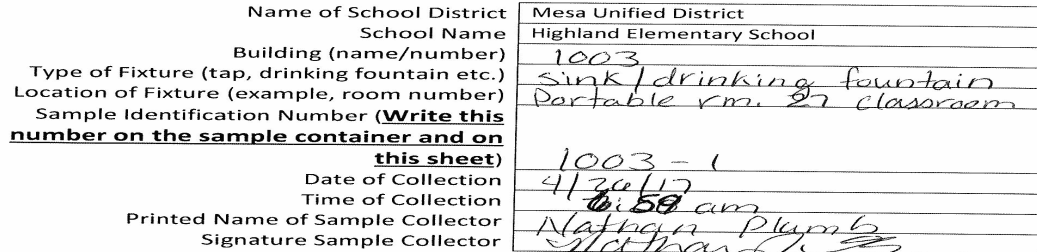 Name of School District Mesa Unified District
School Name Highland Elementary School
Building (name/number) 1003
Type of Fixture (tap, drinking fountain etc.) sink/drinking fountain
Location of Fixture (example, room number) Portable rm. 27 classroom
Sample Identification Number (Write this
number on the sample container and on
this sheet) 1003-1
Date of Collection 4/26/17
Time of Collection am
Printed Name of Sample Collector Nathan Plumb
Signature Sample Collector Nathan